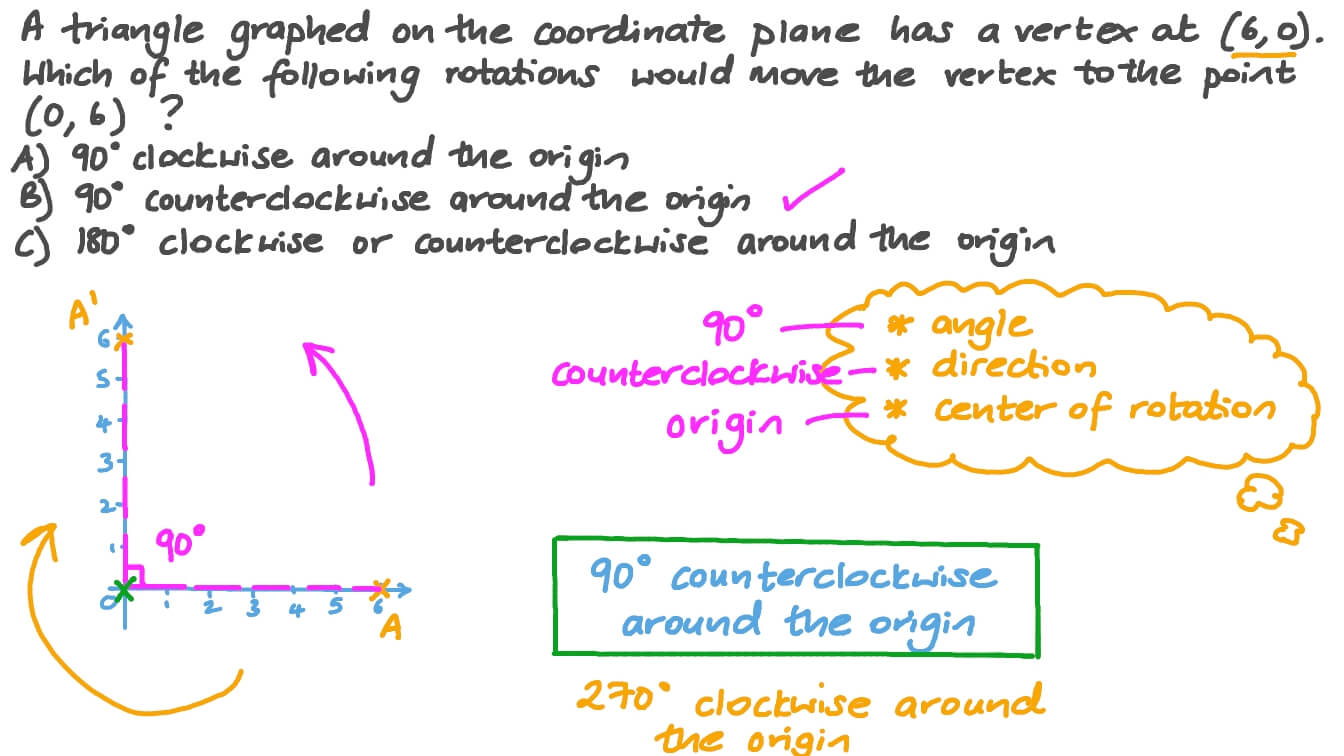 A triangle graphed on the coordinate plane has a vertex at (6,0).
Which of the following rotations would move the vertex to the point
(0,6) ?
A) 90° clockwise around the origin
B) 90° counterclockwise around the origin
C) 180° clockwise or counterclockwise around the origin
A'
6
5
4
3
2
1
0
1 2 3 4 5 6
A
90°
90°
counterclockwise
origin
* angle
* direction
* center of rotation
90° counterclockwise
around the origin
270° clockwise around
the origin